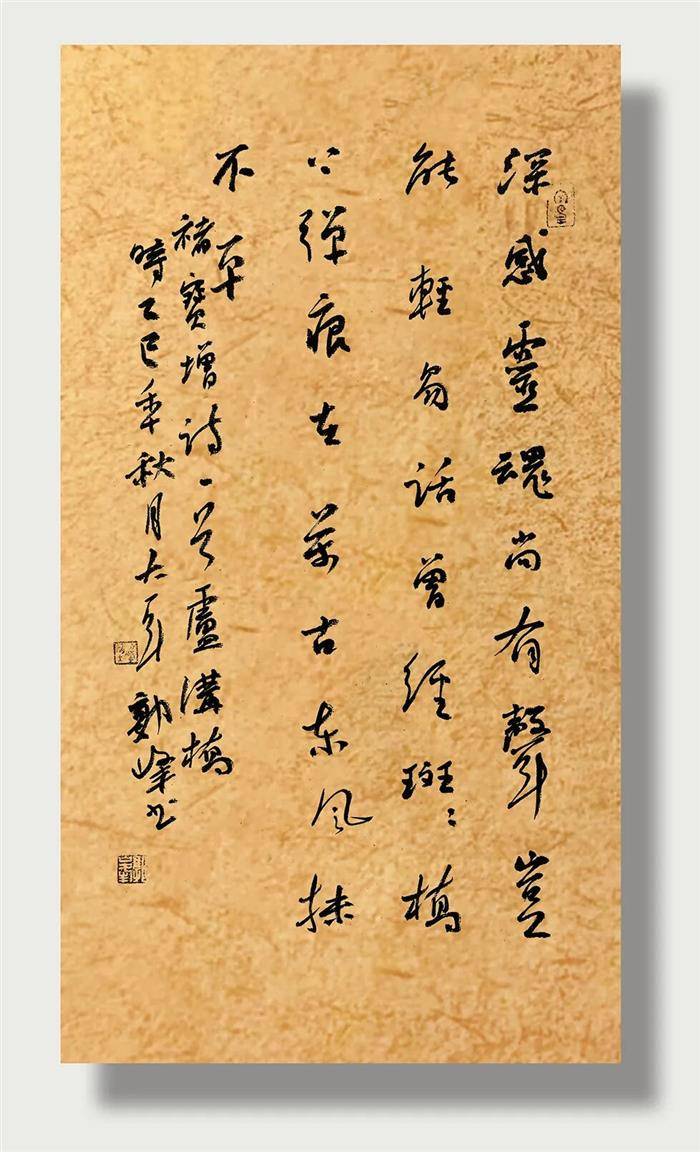 深感靈魂尚有聲豈
能輕易話曾經斑〻橋
上彈痕在萬古東風抹
不平
褚寶增詩一首盧溝橋
時乙巳年秋月大峰書